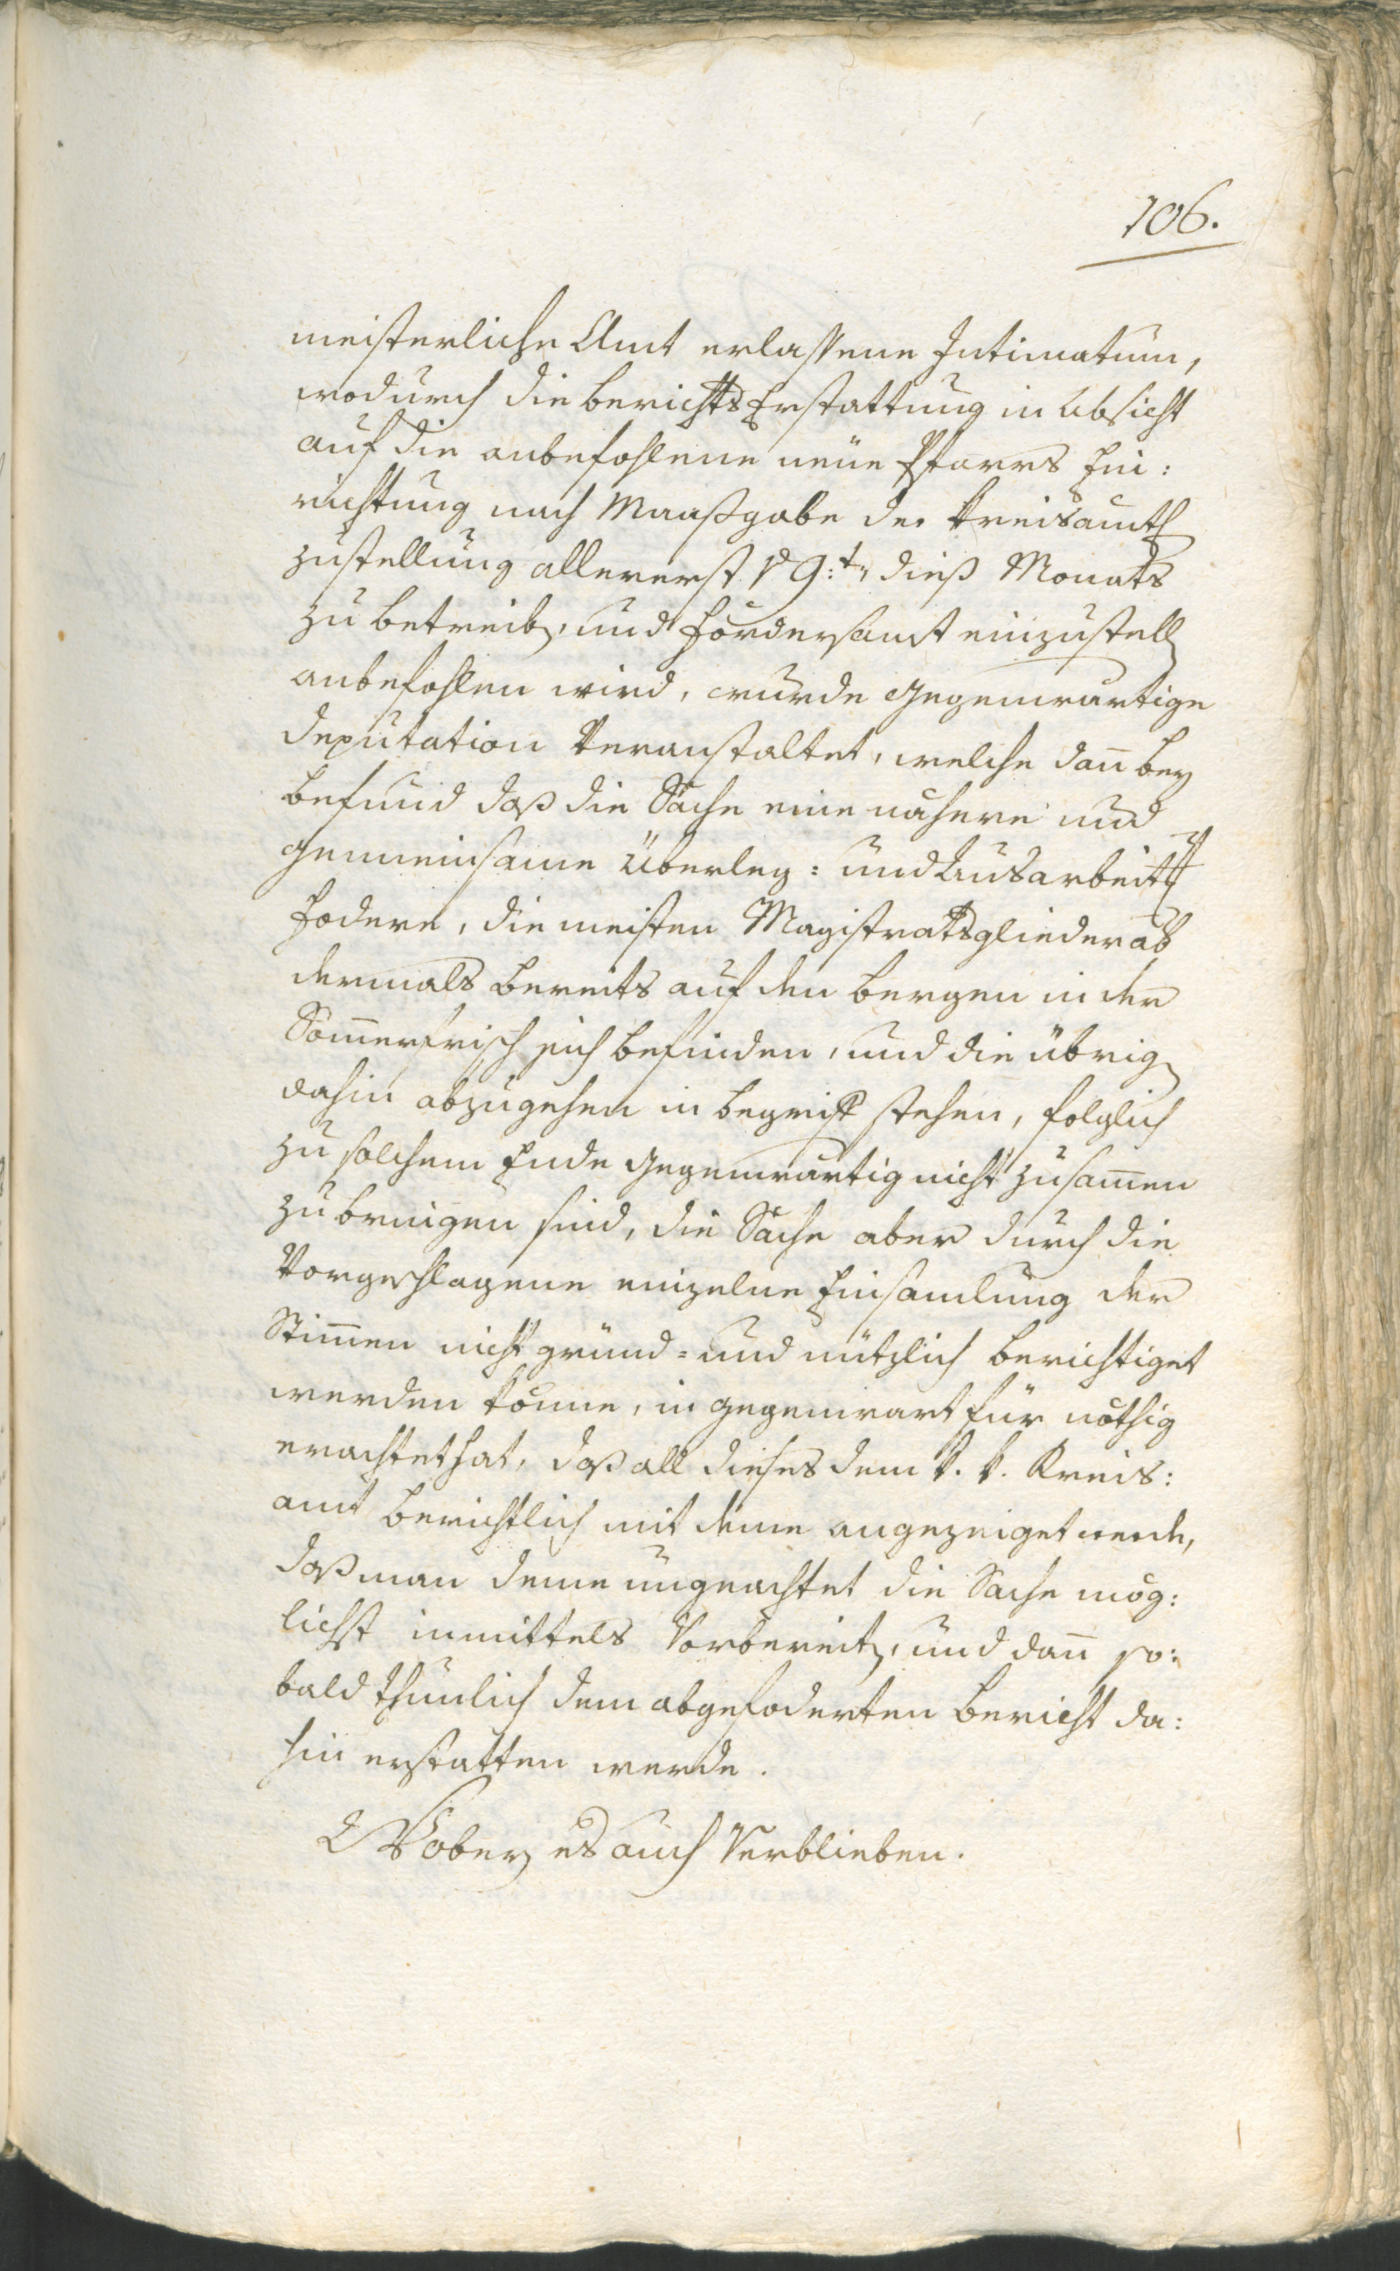 106.
meisterliche Amt erlassene Intimatum,
wodurch die berichts Erstattung in Absicht
auf die anbefohlene neüe Pfarrs Ein:
richtung nach Maaßgabe der Kreisamtl
zustellung allererst 9:t dieß Monats
zu betreib, und fördersamst einzustell
anbefohlen wird, wurde gegenwärtige
deputation Veranstaltet, welche dañ bey
befund daß die Sache eine nähere und
gemeinsame Überleg: und Ausarbeit
fodere, die meisten Magistratsglieder ab
dermals bereits auf den bergen in der
Som̃erfrisch sich befinden, und die übrig
dahin abzugehen in begrif stehen, folglich
zu solchem Ende gegenwärtig nicht zusam̃en
zu bringen sind, die Sache aber durch die
Vorgeschlagene einzelne Einsamlung der
Stim̃en nicht gründ= und nützlich berichtiget
werden könne, in gegenwart für nöthig
erachtet hat, daß all dieses dem k. k. Kreis:
amt berichtlich mit deme angezeiget werde,
daß man deme ungeachtet die Sache mög:
lichst inmittels Vorbereit, und dañ so:
bald thunlich dem abgefoderten bericht da:
hin erstatten werde.
Wobey es auch Verblieben.